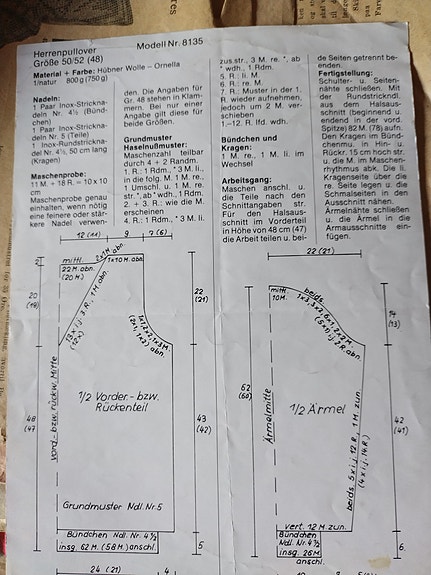 Herrenpullover
Größe 50/52 (48)
Modell Nr. 8135
Material + Farbe: Hübner Wolle – Ornella
1/natur 800 g (750 g)
Nadeln:
1 Paar Inox-Stricknadeln
Nr. 4½ (Bündchen)
1 Paar Inox-Stricknadeln
Nr. 5 (Teile)
1 Inox-Rundstricknadel
Nr. 4½, 50 cm lang
(Kragen)
Maschenprobe:
11 M. + 18 R. = 10 x 10
cm
Maschenprobe genau
einhalten, wenn nötig
eine feinere oder stärkere
Nadel verwenden.
Die Angaben für
Gr. 48 stehen in Klammern.
Bei nur einer
Angabe gilt diese für
beide Größen.
Grundmuster
Haselnußmuster:
Maschenzahl teilbar
durch 4 + 2 Randm.
1. R.: 1 Rdm., * 3 M. li.,
in die folg. M. 1 M. re.,
1 Umschl. u. 1 M. re.
str.*, ab * wdh., 1 Rdm.
2. + 3. R.: wie die M.
erscheinen
4. R.: 1 Rdm., * 3 M. li.
zus.str., 3 M. re. *, ab
* wdh., 1 Rdm.
5. R.: li. M.
6. R.: re. M.
7. R.: Muster in der 1.
R. wieder aufnehmen,
jedoch um 2 M. verschieben
1.–12. R. lfd. wdh.
Bündchen und
Kragen:
1 M. re., 1 M. li. im
Wechsel
Arbeitsgang:
Maschen anschl. u.
die Teile nach den
Schnittangaben str.
Für den Halsausschnitt
im Vorderteil
in Höhe von 48 cm (47)
die Arbeit teilen u. beide
Seiten getrennt beenden.
Fertigstellung:
Schulter- u. Seitennähte
schließen. Mit
der Rundstricknadel
aus dem Halsausschnitt
(beginnend u.
endend in der vord.
Spitze) 82 M. (78) aufn.
Den Kragen im Bündchenmu.
in Hin- u.
Rückr. 15 cm hoch str.
u. die M. im Maschenrhythmus
abk. Die li.
Kragenseite über die
re. Seite legen u. die
Schmalseiten in den
Ausschnitt nähen.
Ärmelnähte schließen
u. die Ärmel in die
Armausschnitte einfügen.
12 (11) 9 7 (6)
2
mittl.
22 M. abn.
(20 M)
2x7M.
1x10M. abn.
20
(19)
22
(21)
48
(47
43
(42)
vord.- bzw. rückw. Mitte
1/2 Vorder- bzw.
Rückenteil
Grundmuster Ndl. Nr. 5
Bündchen Ndl. Nr. 4½
insg. 62 M. (58 M.) anschl.
5
24 (21) 4
22 (21)
mittl.
10 M.
beids.
14
(13)
52
(50)
Ärmelmitte
1/2 Ärmel
42
(41)
beids. 5 x i.j. 12. R., 1 M. zun.
(4 x i.j. 14. R.)
vert. 12 M. zun.
Bündchen
Ndl. Nr. 4½
insg. 26 M
anschl.
6